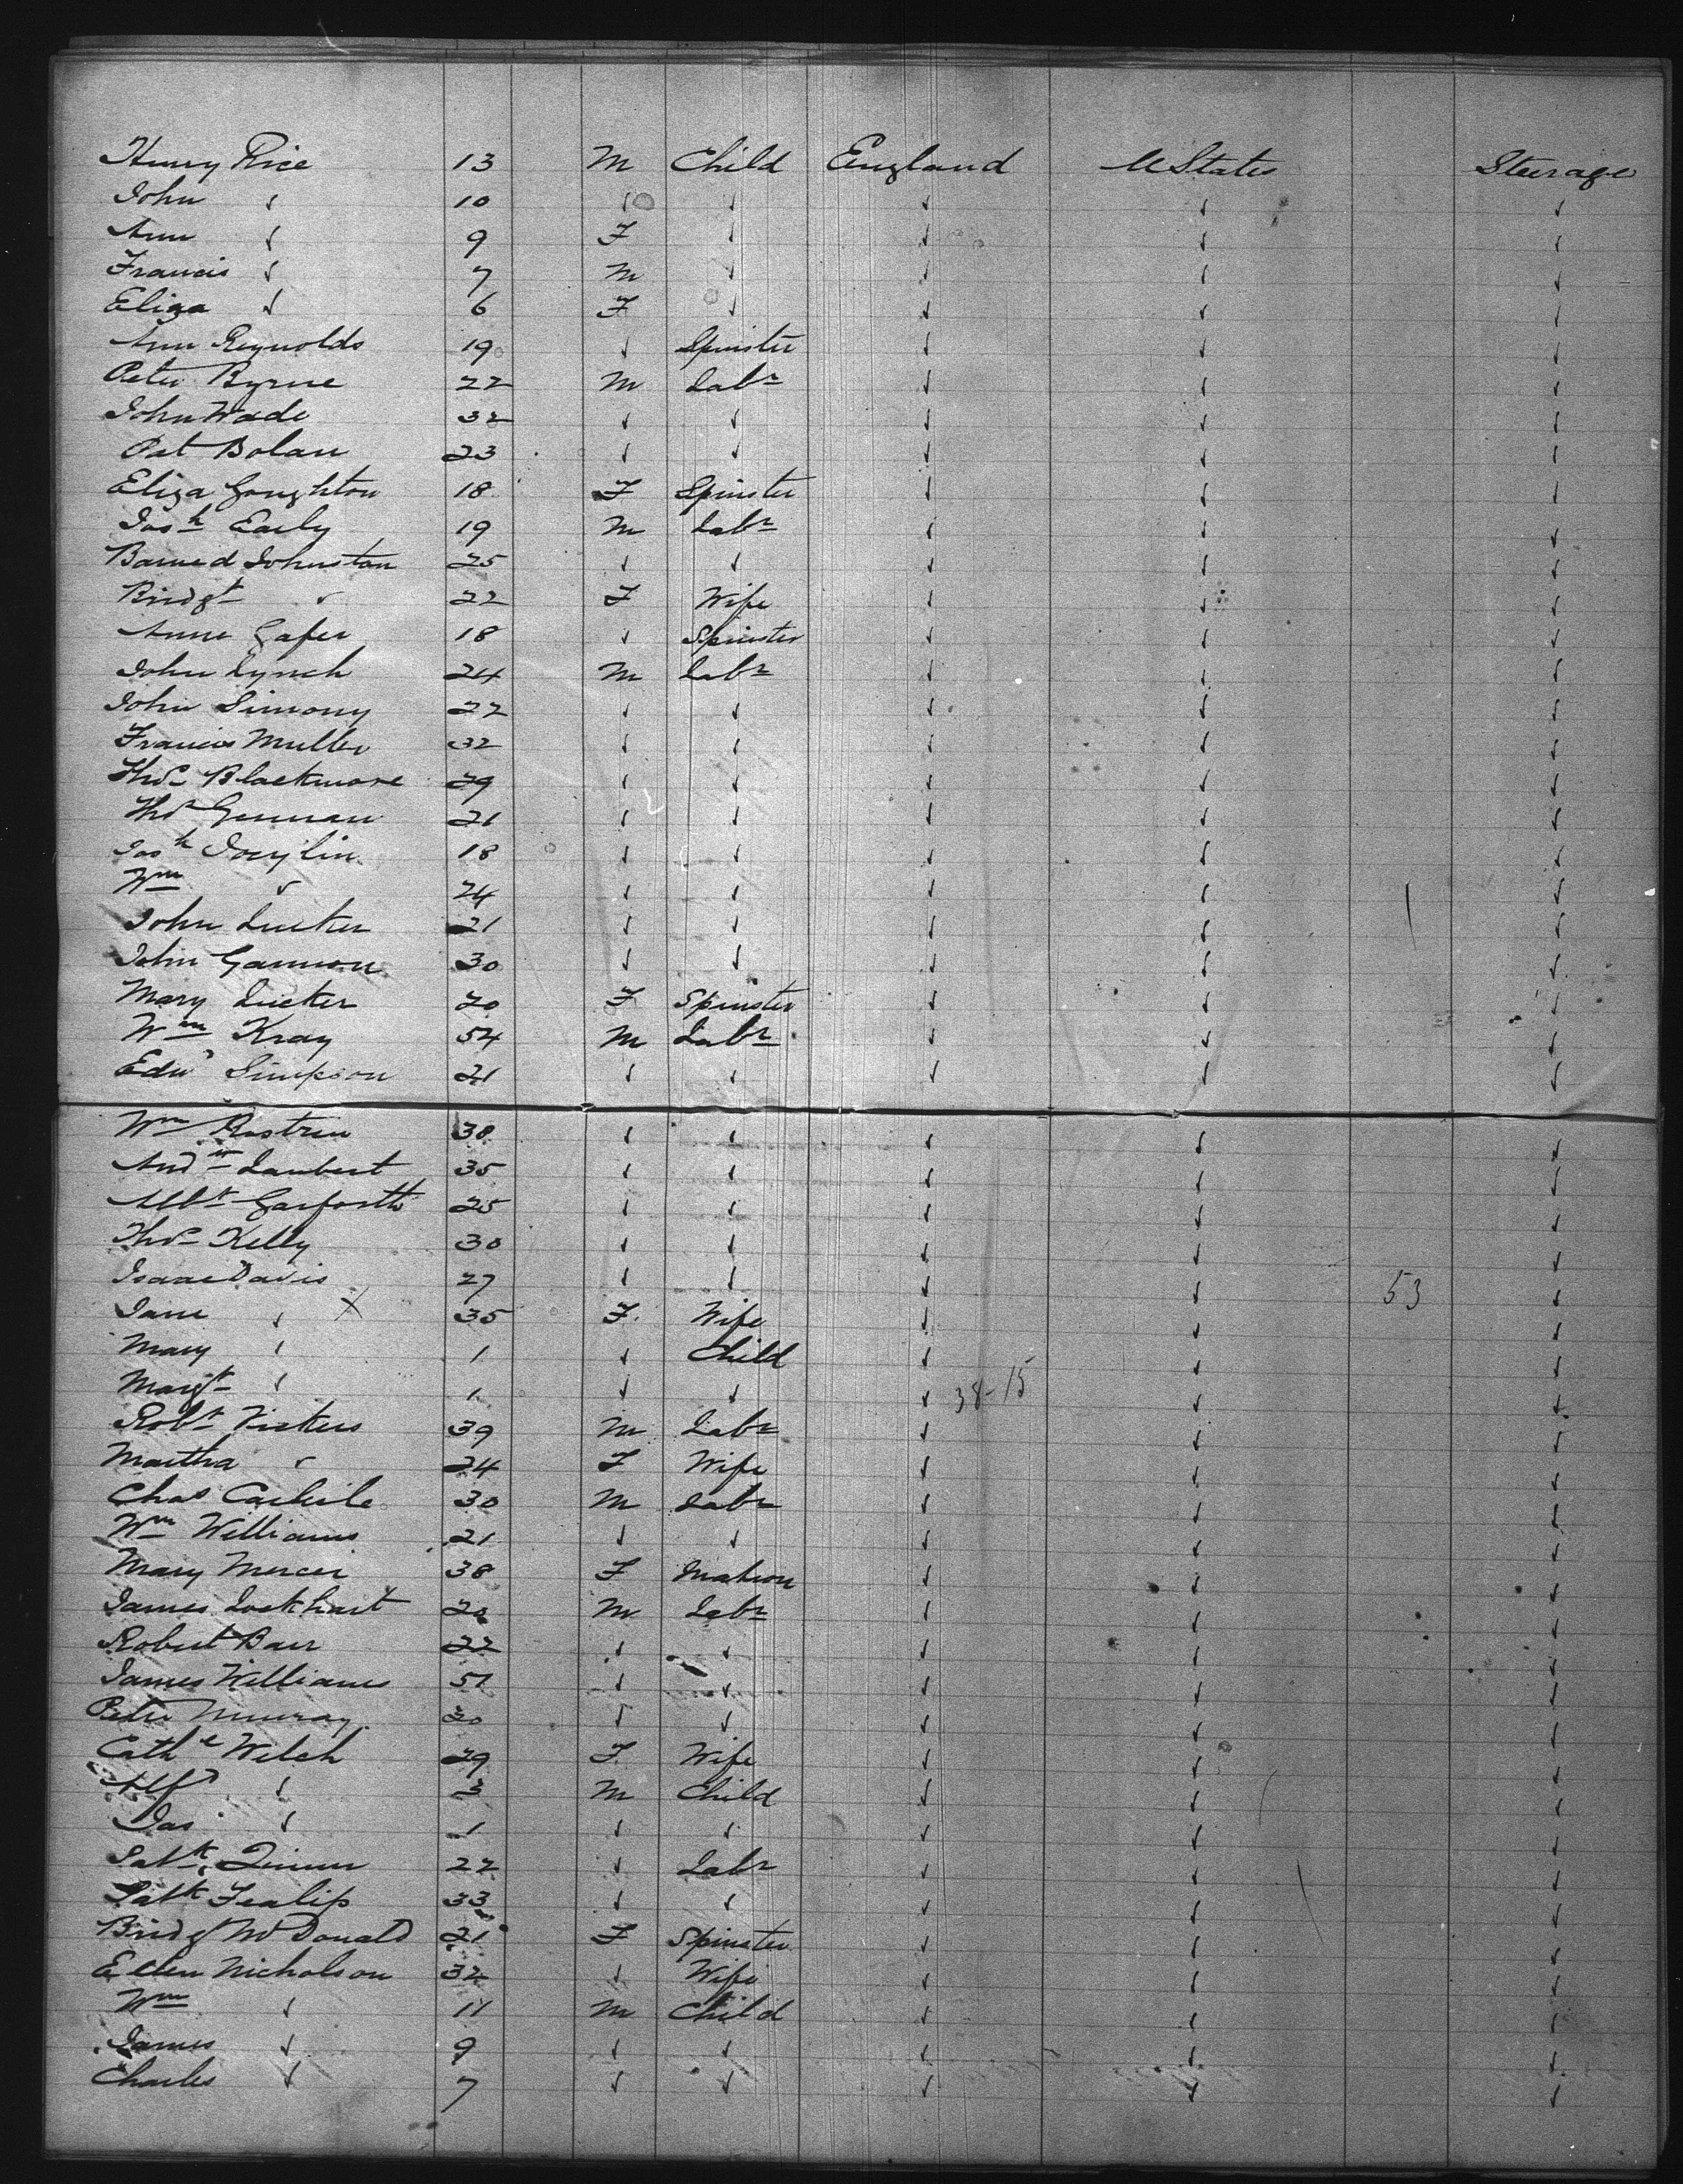 Henry Rice 13 M Child England U States Steerage
John ✓ 10 ✓ ✓ ✓ ✓ ✓
Ann ✓ 9 F ✓ ✓ ✓ ✓
Francis ✓ 7 M ✓ ✓ ✓ ✓
Eliza ✓ 6 F ✓ ✓ ✓ ✓
Ann Reynolds 19 ✓ Spinster ✓ ✓ ✓
Peter Byrne 22 M Labr ✓ ✓ ✓
John Wade 32 ✓ ✓ ✓ ✓ ✓
Pat Bolan 23 ✓ ✓ ✓ ✓ ✓
Eliza Goughton 18 F Spinster ✓ ✓ ✓
Josh Early 19 M Labr ✓ ✓ ✓
Barned Johnston 25 ✓ ✓ ✓ ✓ ✓
Bridgt ✓ 22 F Wife ✓ ✓ ✓
Anne Gafer 18 ✓ Spinster ✓ ✓ ✓
John Lynch 24 M Labr ✓ ✓ ✓
John Simony 22 ✓ ✓ ✓ ✓ ✓
Francis Muller 32 ✓ ✓ ✓ ✓ ✓
Thos Blackmore 29 ✓ ✓ ✓ ✓ ✓
Thos 21 ✓ ✓ ✓ ✓ ✓
Josh 18 ✓ ✓ ✓ ✓ ✓
Wm ✓ 24 ✓ ✓ ✓ ✓ ✓
John 21 ✓ ✓ ✓ ✓ ✓
John Gannon 30 ✓ ✓ ✓ ✓ ✓
Mary 20 F Spinster ✓ ✓ ✓
Wm Kray 54 M Labr ✓ ✓ ✓
Edwd Simpson 21 ✓ ✓ ✓ ✓ ✓
Wm 38 ✓ ✓ ✓ ✓ ✓
Andw Lambert 35 ✓ ✓ ✓ ✓ ✓
Albt Garforth 25 ✓ ✓ ✓ ✓ ✓
Thos Kelly 30 ✓ ✓ ✓ ✓ ✓
Isaac Davis 27 ✓ ✓ ✓ ✓ 53 ✓
Jane ✓ X 35 F Wife ✓ ✓ ✓
Mary ✓ 1 ✓ Child ✓ ✓ ✓
Margt ✓ 1 ✓ ✓ ✓ 38-15 ✓ ✓
Robt Vickers 39 M Labr ✓ ✓ ✓
Martha ✓ 24 F Wife ✓ ✓ ✓
Chas Carlisle 30 M Labr ✓ ✓ ✓
Wm Williams 21 ✓ ✓ ✓ ✓ ✓
Mary Mercer 38 F Matron ✓ ✓ ✓
James Lockhart 20 M Labr ✓ ✓ ✓
Robert Barr 22 ✓ ✓ ✓ ✓ ✓
James Williams 51 ✓ ✓ ✓ ✓ ✓
Peter Murray 30 ✓ ✓ ✓ ✓ ✓
Cathe Welch 29 F Wife ✓ ✓ ✓
Alfd ✓ 3 M Child ✓ ✓ ✓
Jas ✓ 1 ✓ ✓ ✓ ✓ ✓
Patk 22 ✓ Labr ✓ ✓ ✓
Patk 33 ✓ ✓ ✓ ✓ ✓
Bridgt McDonald 21 F Spinster ✓ ✓ ✓
Ellen Nicholson 32 ✓ Wife ✓ ✓ ✓
Wm ✓ 11 M Child ✓ ✓ ✓
James ✓ 9 ✓ ✓ ✓ ✓ ✓
Charles ✓ 7 ✓ ✓ ✓ ✓ ✓